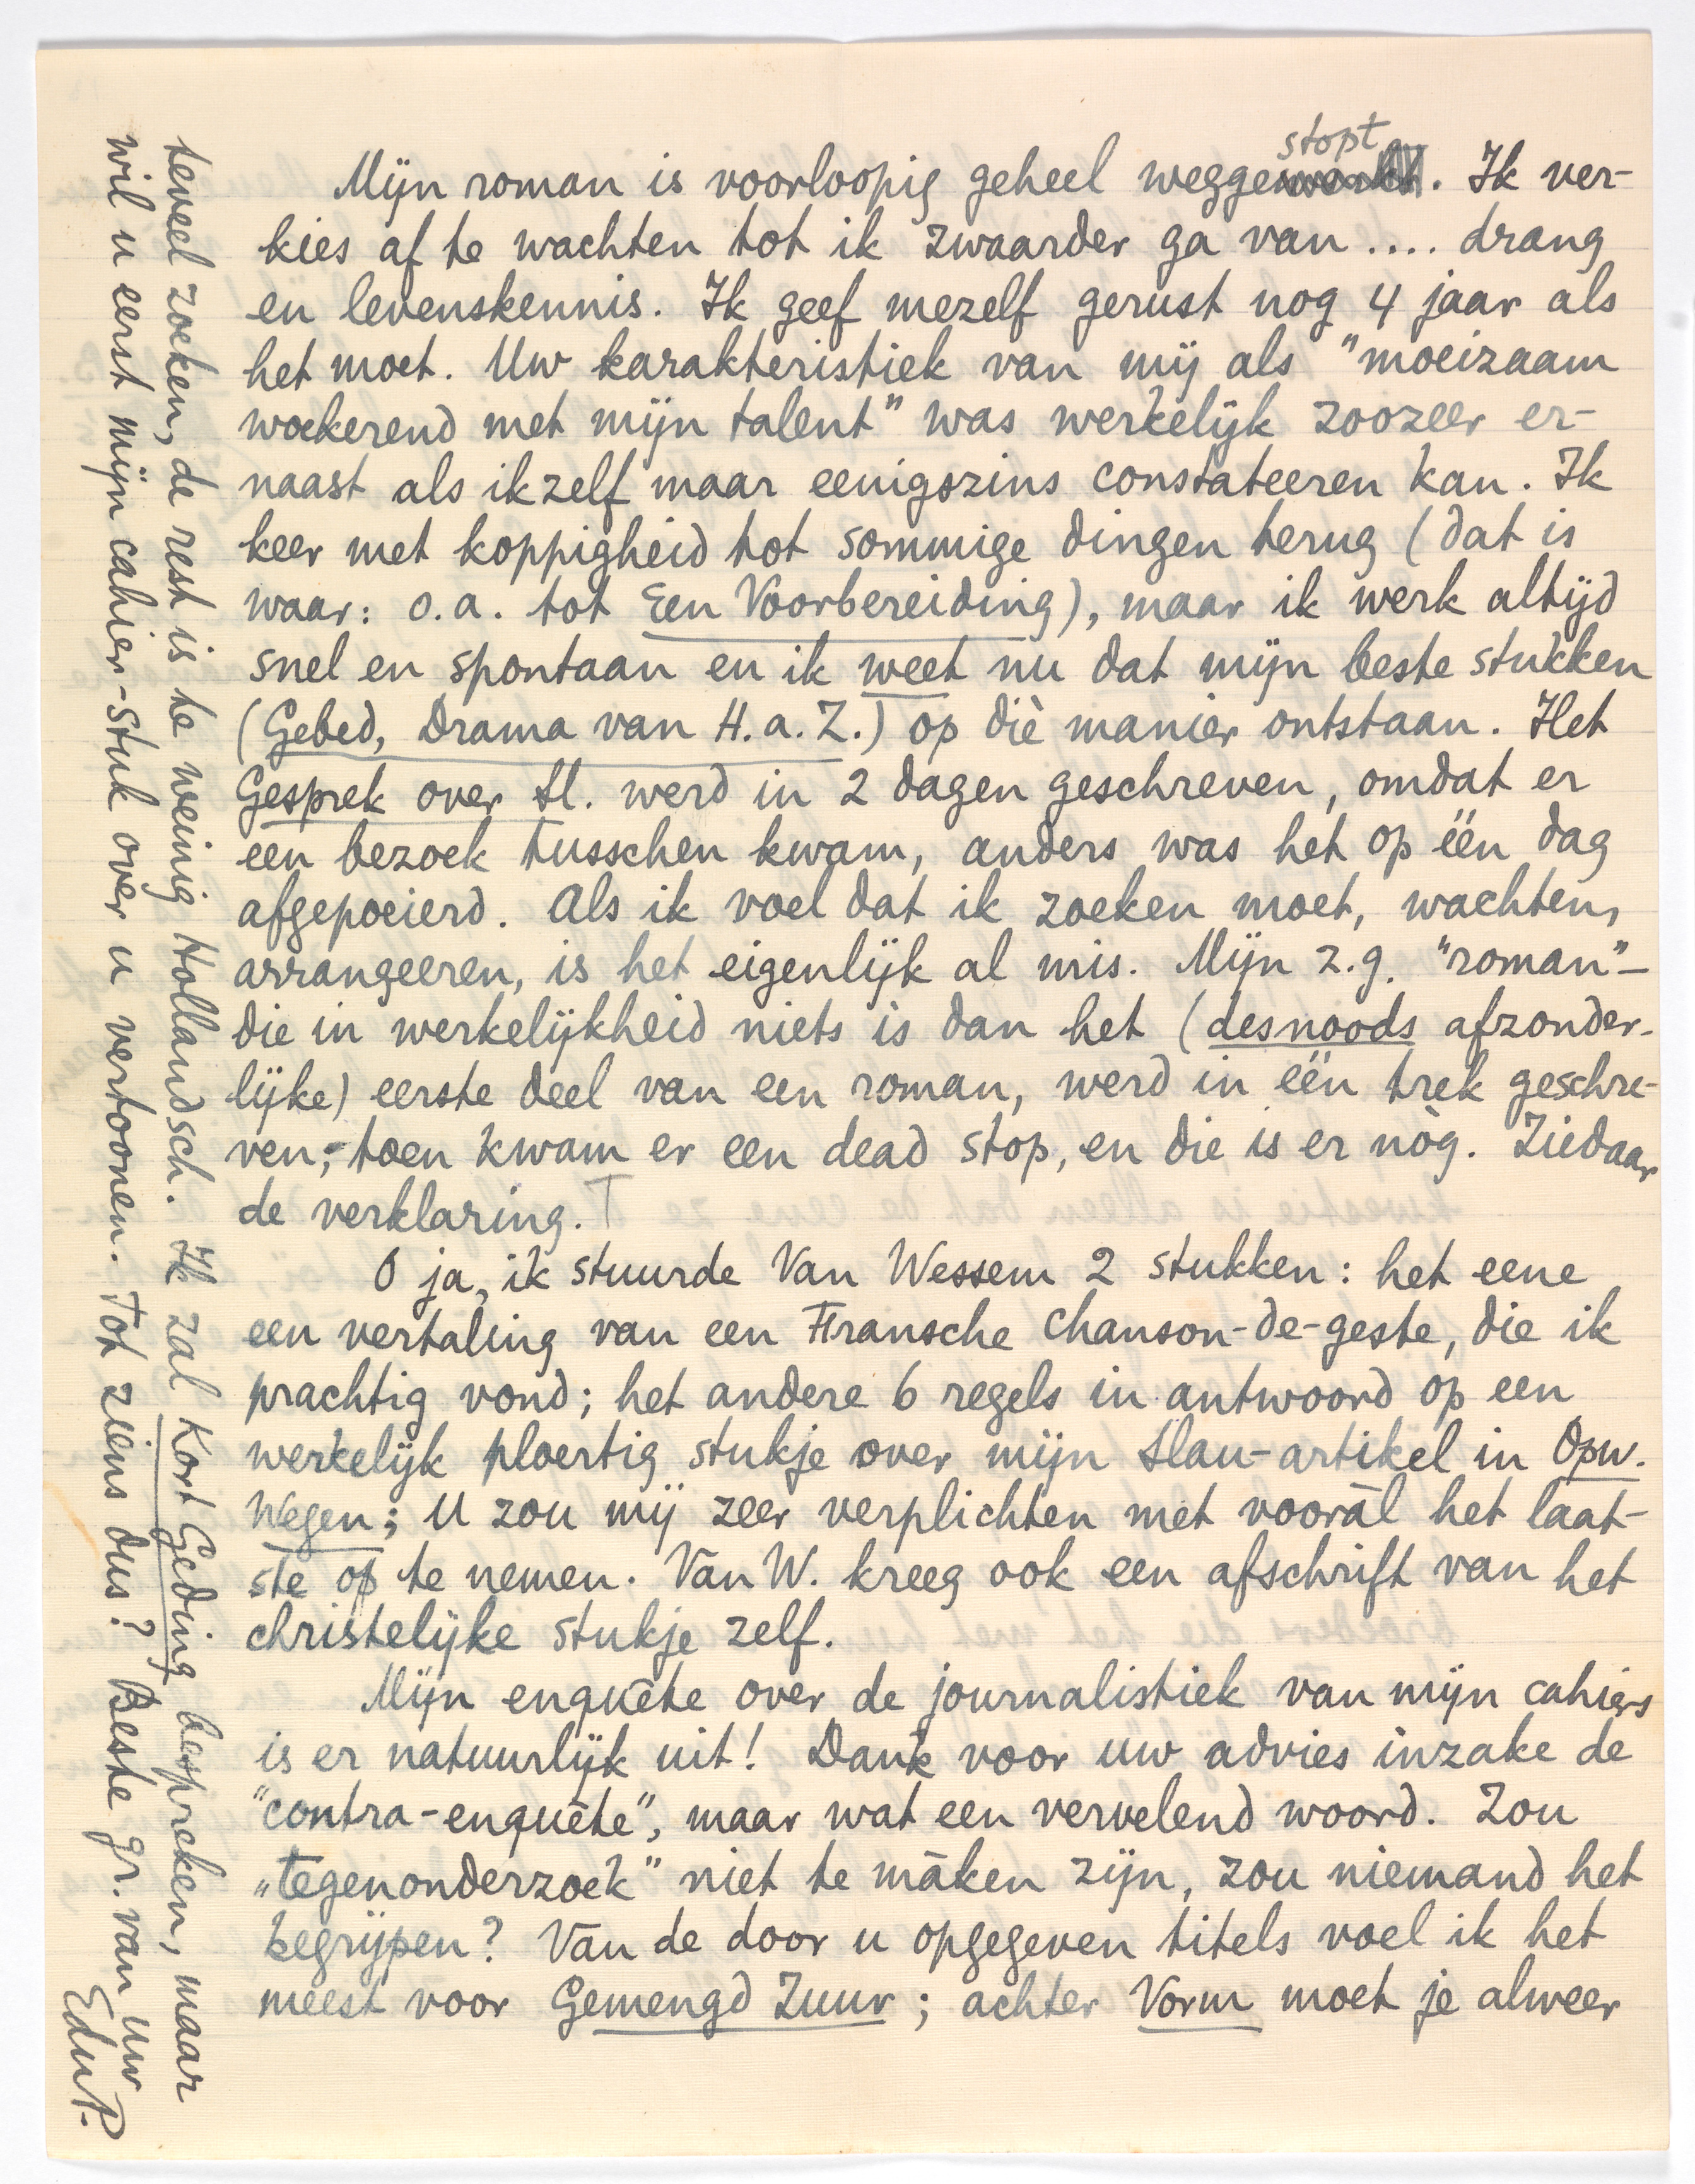 Mijn roman is voorloopig geheel weggestopt. Ik ver-
kies af te wachten tot ik zwaarder ga van .... drang
en levenskennis. Ik geef mezelf gerust nog 4 jaar als
het moet. Uw karakteristiek van mij als "moeizaam
woekerend met mijn talent" was werkelijk zoozeer er-
naast als ikzelf maar eenigszins constateeren kan. Ik
keer met koppigheid tot sommige dingen terug (dat is
waar: o.a. tot Een Voorbereiding), maar ik werk altijd
snel en spontaan en ik weet nu dat mijn beste stukken
(Gebed, Drama van H.a.Z.) op diè manier ontstaan. Het
Gesprek over Sl. werd in 2 dagen geschreven, omdat er
een bezoek tusschen kwam, anders was het op één dag
afgepoeierd. Als ik voel dat ik zoeken moet, wachten,
arrangeeren, is het eigenlijk al mis. Mijn z.g. "roman" –
die in werkelijkheid niets is dan het (desnoods afzonder-
lijke) eerste deel van een roman, werd in één trek geschre-
ven; toen kwam er een dead stop, en die is er nòg. Ziedaar
de verklaring.
O ja, ik stuurde Van Wessem 2 stukken: het eene
een vertaling van een Fransche chanson-de-geste, die ik
prachtig vond; het andere 6 regels in antwoord op een
werkelijk ploertig stukje over mijn Slau-artikel in Opw.
Wegen; U zou mij zeer verplichten met vooràl het laat-
ste op te nemen. Van W. kreeg ook een afschrift van het
christelijke stukje zelf.
Mijn enquête over de journalistiek van mijn cahiers
is er natuurlijk uit! Dank voor uw advies inzake de
"contra-enquête", maar wat een vervelend woord. Zou
„tegenonderzoek" niet te màken zijn, zou niemand het
begrijpen? Van de door u opgegeven titels voel ik het
meest voor Gemengd Zuur; achter Vorm moet je alweer
teveel zoeken, de rest is te weinig Hollandsch. Ik zal Kort Geding bespreken, maar
wil u eerst mijn cahier-stuk over u vertoonen. Tot ziens dus? Beste gr. van uw
EduP.